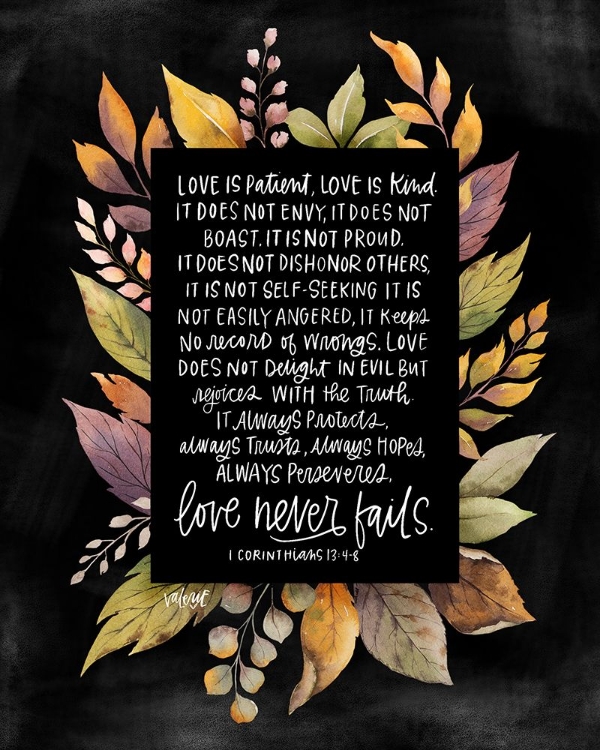 LOVE IS Patient, LOVE IS Kind.
IT DOES NOT ENVY, IT DOES NOT
BOAST. IT IS NOT PROUD.
IT DOES NOT DISHONOR OTHERS,
IT IS NOT SELF-SEEKING IT IS
NOT EASILY ANGERED, IT Keeps
NO record of wrongs. LOVE
DOES NOT Delight IN EVIL BUT
rejoices WITH the Truth.
IT Always Protects,
always Trusts, Always HOPES,
ALWAYS Perseveres,
love never fails.
1 CORINTHIANS 13:4-8
valerie